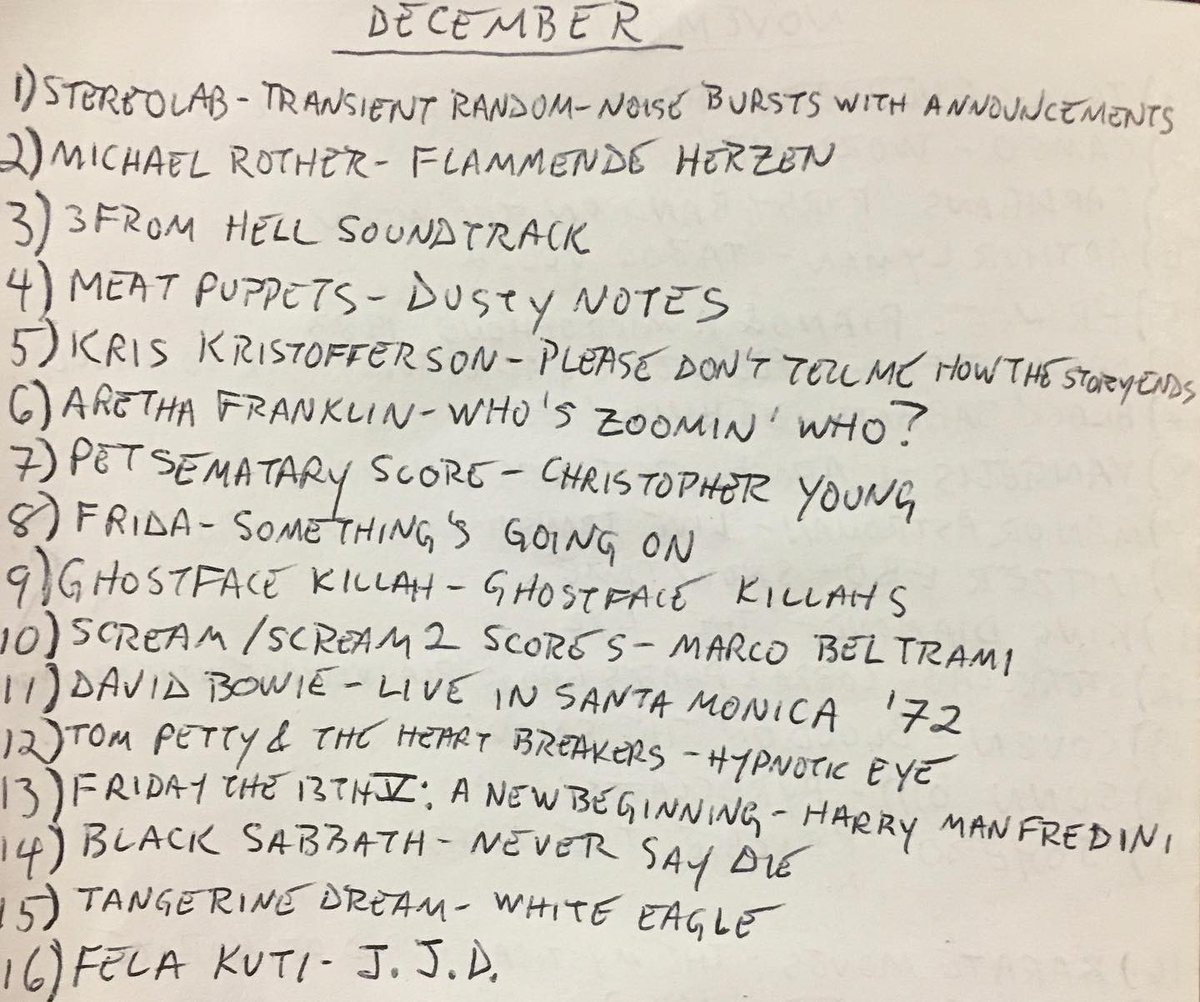 DECEMBER
1) STEREOLAB - TRANSIENT RANDOM-NOISE BURSTS WITH ANNOUNCEMENTS
2) MICHAEL ROTHER - FLAMMENDE HERZEN
3) 3 FROM HELL SOUNDTRACK
4) MEAT PUPPETS - DUSTY NOTES
5) KRIS KRISTOFFERSON - PLEASE DON'T TELL ME HOW THE STORY ENDS
6) ARETHA FRANKLIN - WHO'S ZOOMIN' WHO?
7) PET SEMATARY SCORE - CHRISTOPHER YOUNG
8) FRIDA - SOMETHING'S GOING ON
9) GHOSTFACE KILLAH - GHOSTFACE KILLAHS
10) SCREAM/SCREAM 2 SCORES - MARCO BELTRAMI
11) DAVID BOWIE - LIVE IN SANTA MONICA '72
12) TOM PETTY & THE HEART BREAKERS - HYPNOTIC EYE
13) FRIDAY THE 13TH V: A NEW BEGINNING - HARRY MANFREDINI
14) BLACK SABBATH - NEVER SAY DIE
15) TANGERINE DREAM - WHITE EAGLE
16) FELA KUTI - J.J.D.